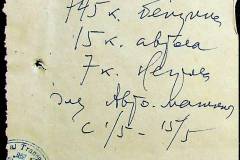 745 к. бензина
15 к. автола
7 к.
для Авто-машины
с 1/5 - 15/5